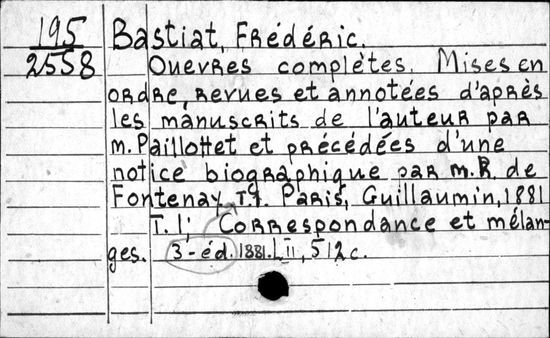 195
2558
Bastiat, Frédéric.
Ouevres complètes. Mises en
ordre, revues et annotées d'après
les manuscrits de l'auteur par
m. Paillottet et précédées d'une
notice biographique par m. R. de
Fontenay. Paris, Guillaumin, 1881
T. 1; Correspondance et mélan-
ges. 3-éd. 1881. LII, 512 c.